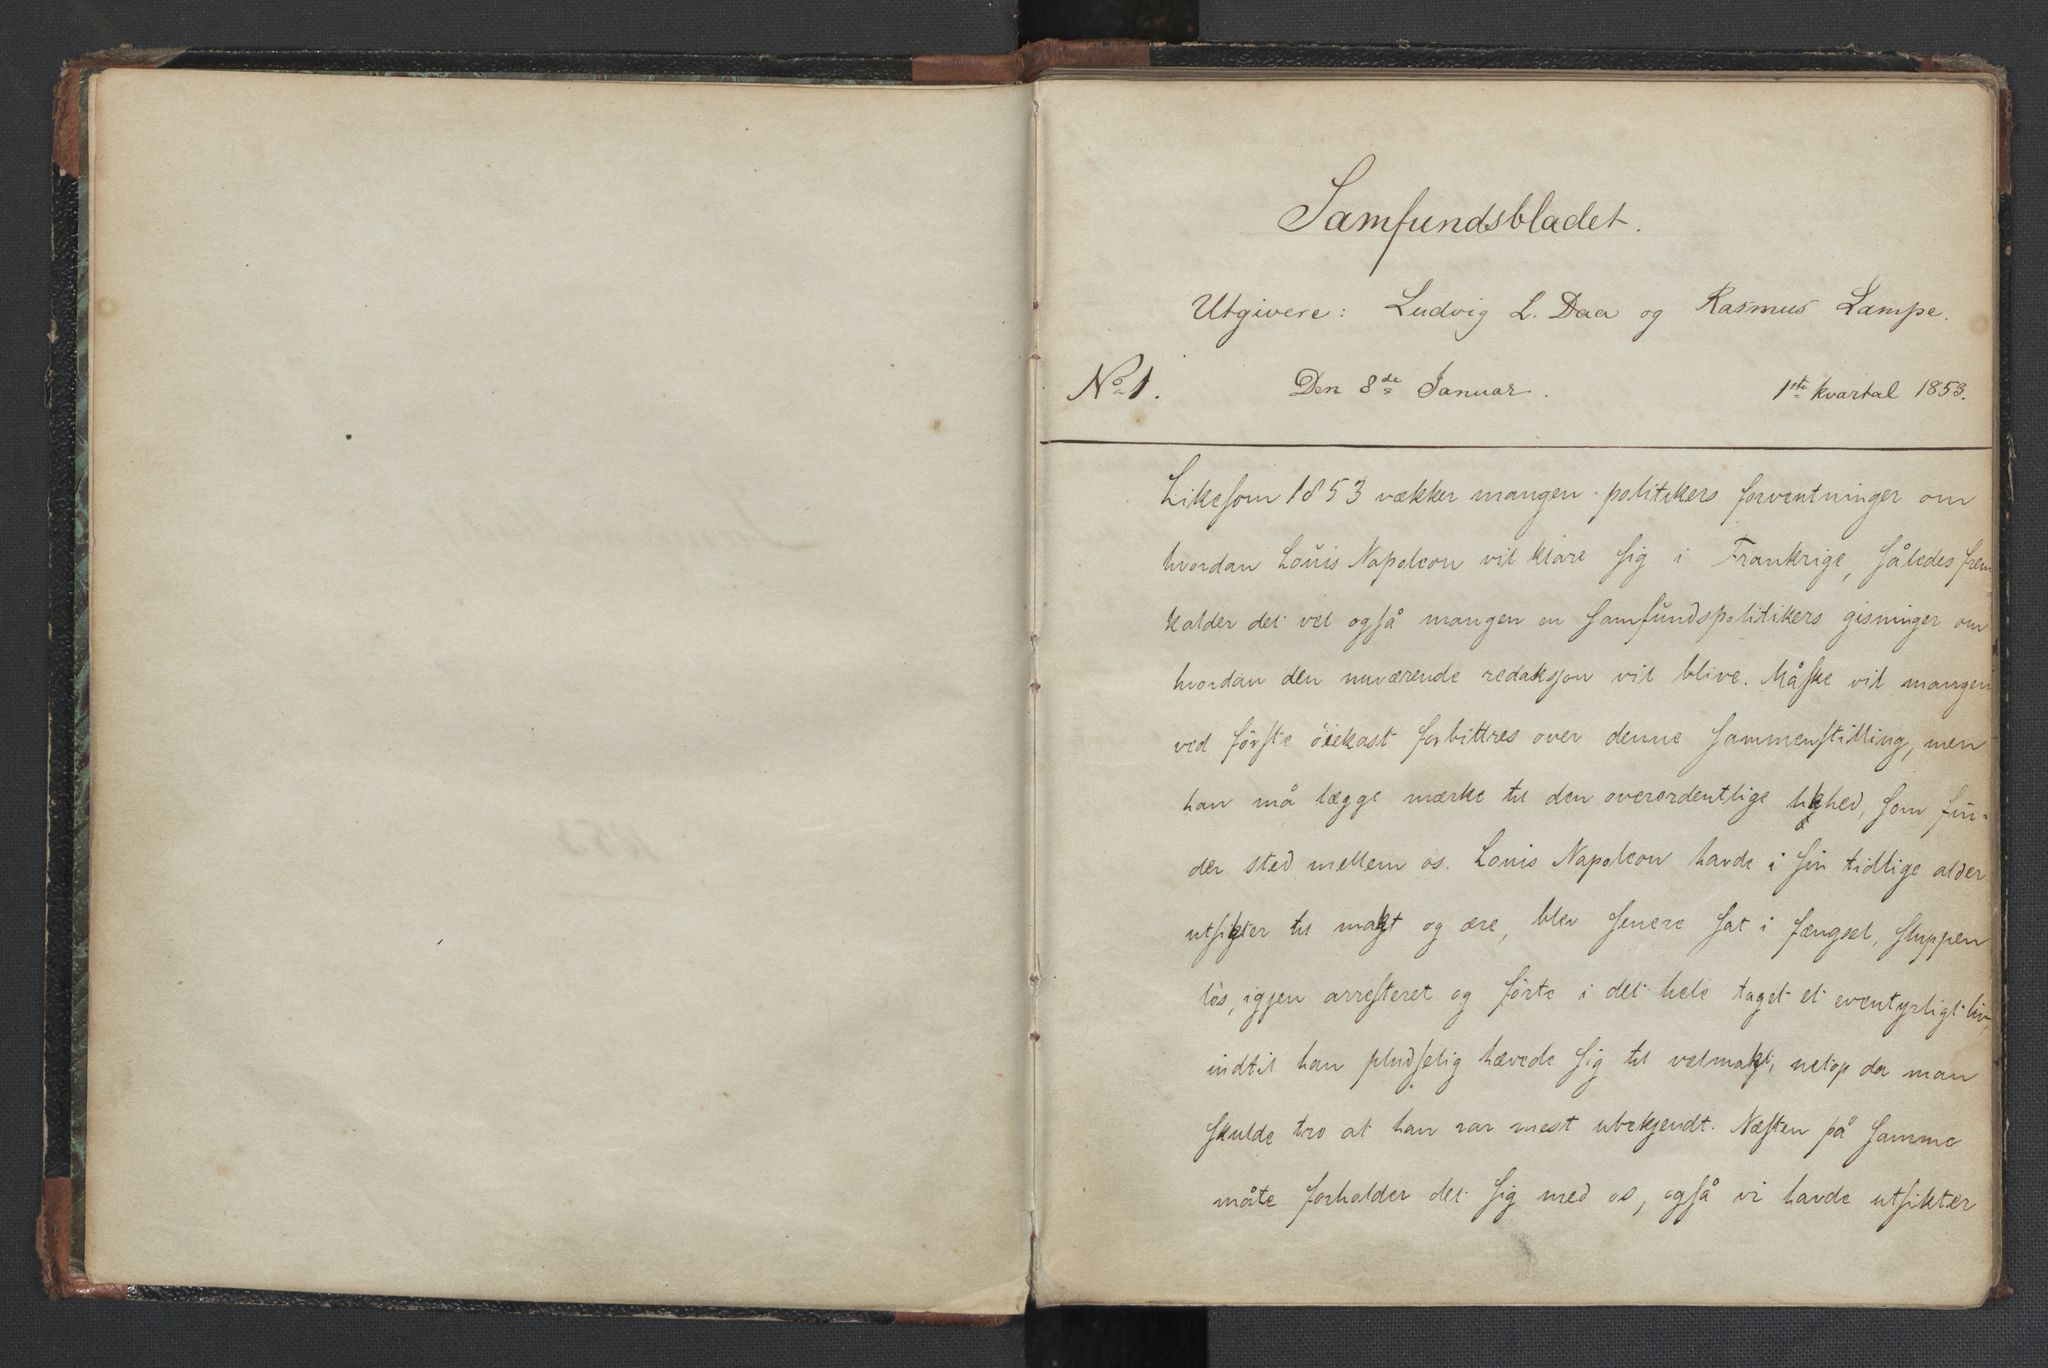 Samfundsbladet.
Utgivere: Ludvig L. Daa og Rasmus Lampe.
No 1. Den 8de Januar. 1ste kvartal 1853.
Likesom 1853 vækker mangen politikers forventninger om
hvordan Louis Napoleon vil klare sig i Frankrige, således frem
kalder det vel også mangen en samfundspolitikers gisninger om
hvordan den nuværende redaksjon vil blive. Måske vil mangen
ved første öiekast forbittres over denne sammenstilling, men
han må lægge mærke til den overordentlige likhed, som fin-
der sted mellem os. Louis Napoleon havde i sin tidlige alder
utsikter til makt og ære, blev senere sat i fængsel, sluppen
lös, igjen arresteret og förte i det hele taget et eventyrligt liv,
indtil han pludselig hævede sig til velmakt, netop da man
skulde tro at han var mest ubekjendt. Næsten på samme
måte forholder det sig med os, også vi havde utsikter